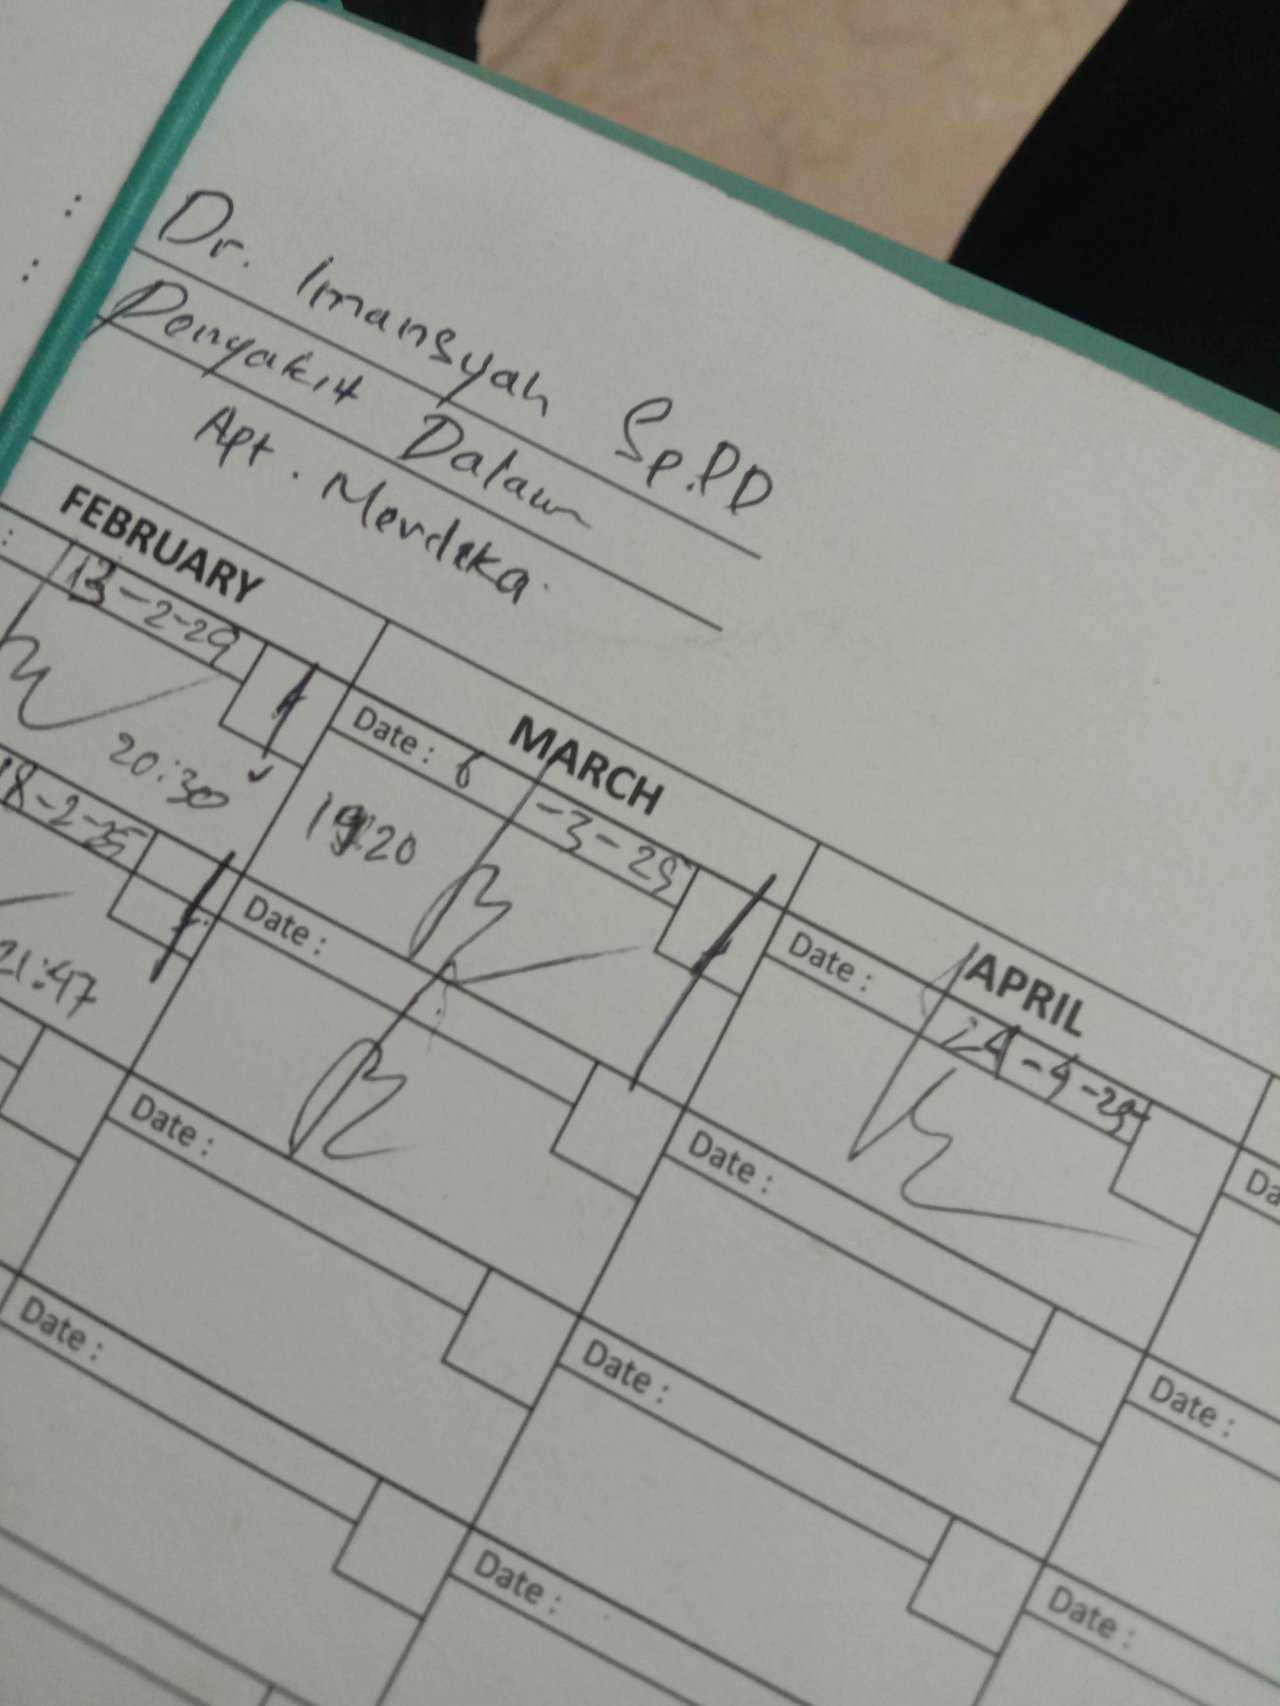 :
:
Dr. Imansyah Sp.PD
Penyakit Dalam
Apt. Merdeka
FEBRUARY MARCH APRIL
: 13-2-29
20:30
Date : 6-3-25
1920
Date : 24-4-25
Da
18-2-25
21:47
Date :
Date :
Date :
Date :
Date :
Date :
Date :
Date :
Date :